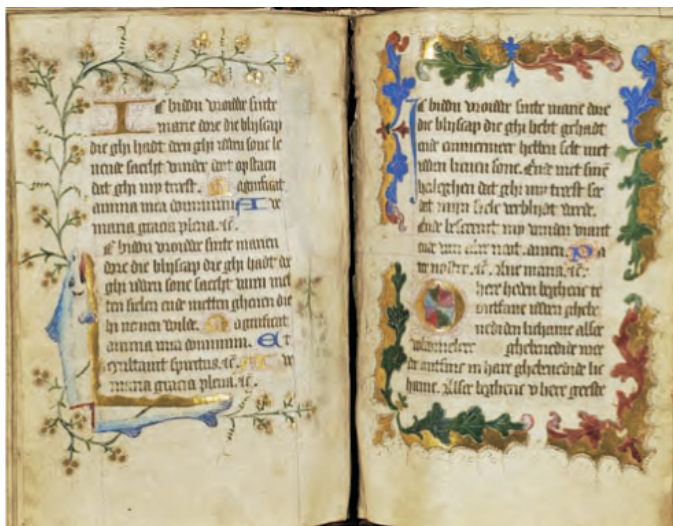 Ic biddu vrouwe sinte
marie dore die blijscap
die ghi hadt doen ghi uwen sone le
vende saecht vander doot opstaen
dat ghi my troest. Magnificat
anima mea dominum. A ve
maria gracia plena. ic.
Ic biddu vrouwe sinte marien
dore die blijscap die ghi hadt do
ghi uwen sone saecht varen met
ten sielen ende metten ghenen die
hi nemen wilde. Magnificat
anima mea dominum. Et
exultauit spiritus. ic. A ve
maria gracia plena. ic.
Ic biddu vrouwe sinte marie dore
die blijscap die ghi hebt gehadt
ende emmermeer hebben selt met
uwen lieven sone. Ende met sinen
heleghen dat ghi my troest soe
dat mijn siele verblijdt werde.
Ende beschermt my vanden viant
ende van alre noot. amen. Pa
ter noster. ic. Aue maria. ic.
O here heden beghere ic
tontfane uwen ghebe
nediden lichame alser
ghebenediide
here
hame. Alser begheric v here gheeste